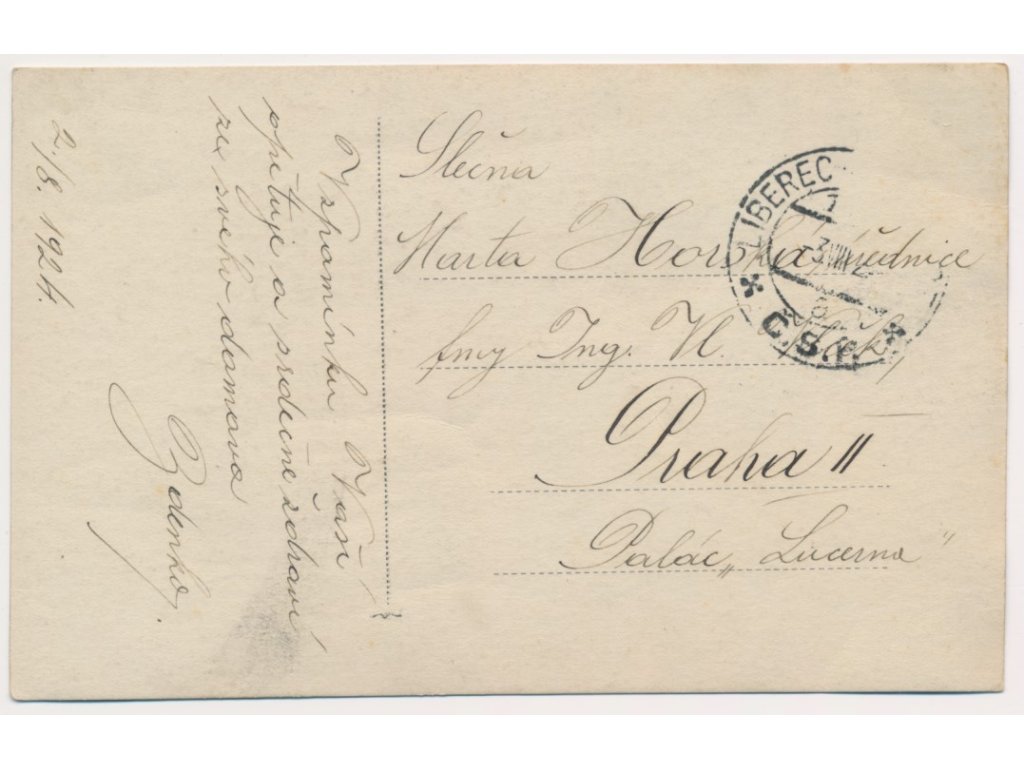 Vzpomínku Vaší
opětuje a srdečně zdraví
ze svého domova
Zdenka.
2./8. 1924.
Slečna
Marta Horská, úřednice
fmy Ing. Vl.
Praha II
Palác „Lucerna"
LIBEREC
3.VIII.2
Č.S.R.